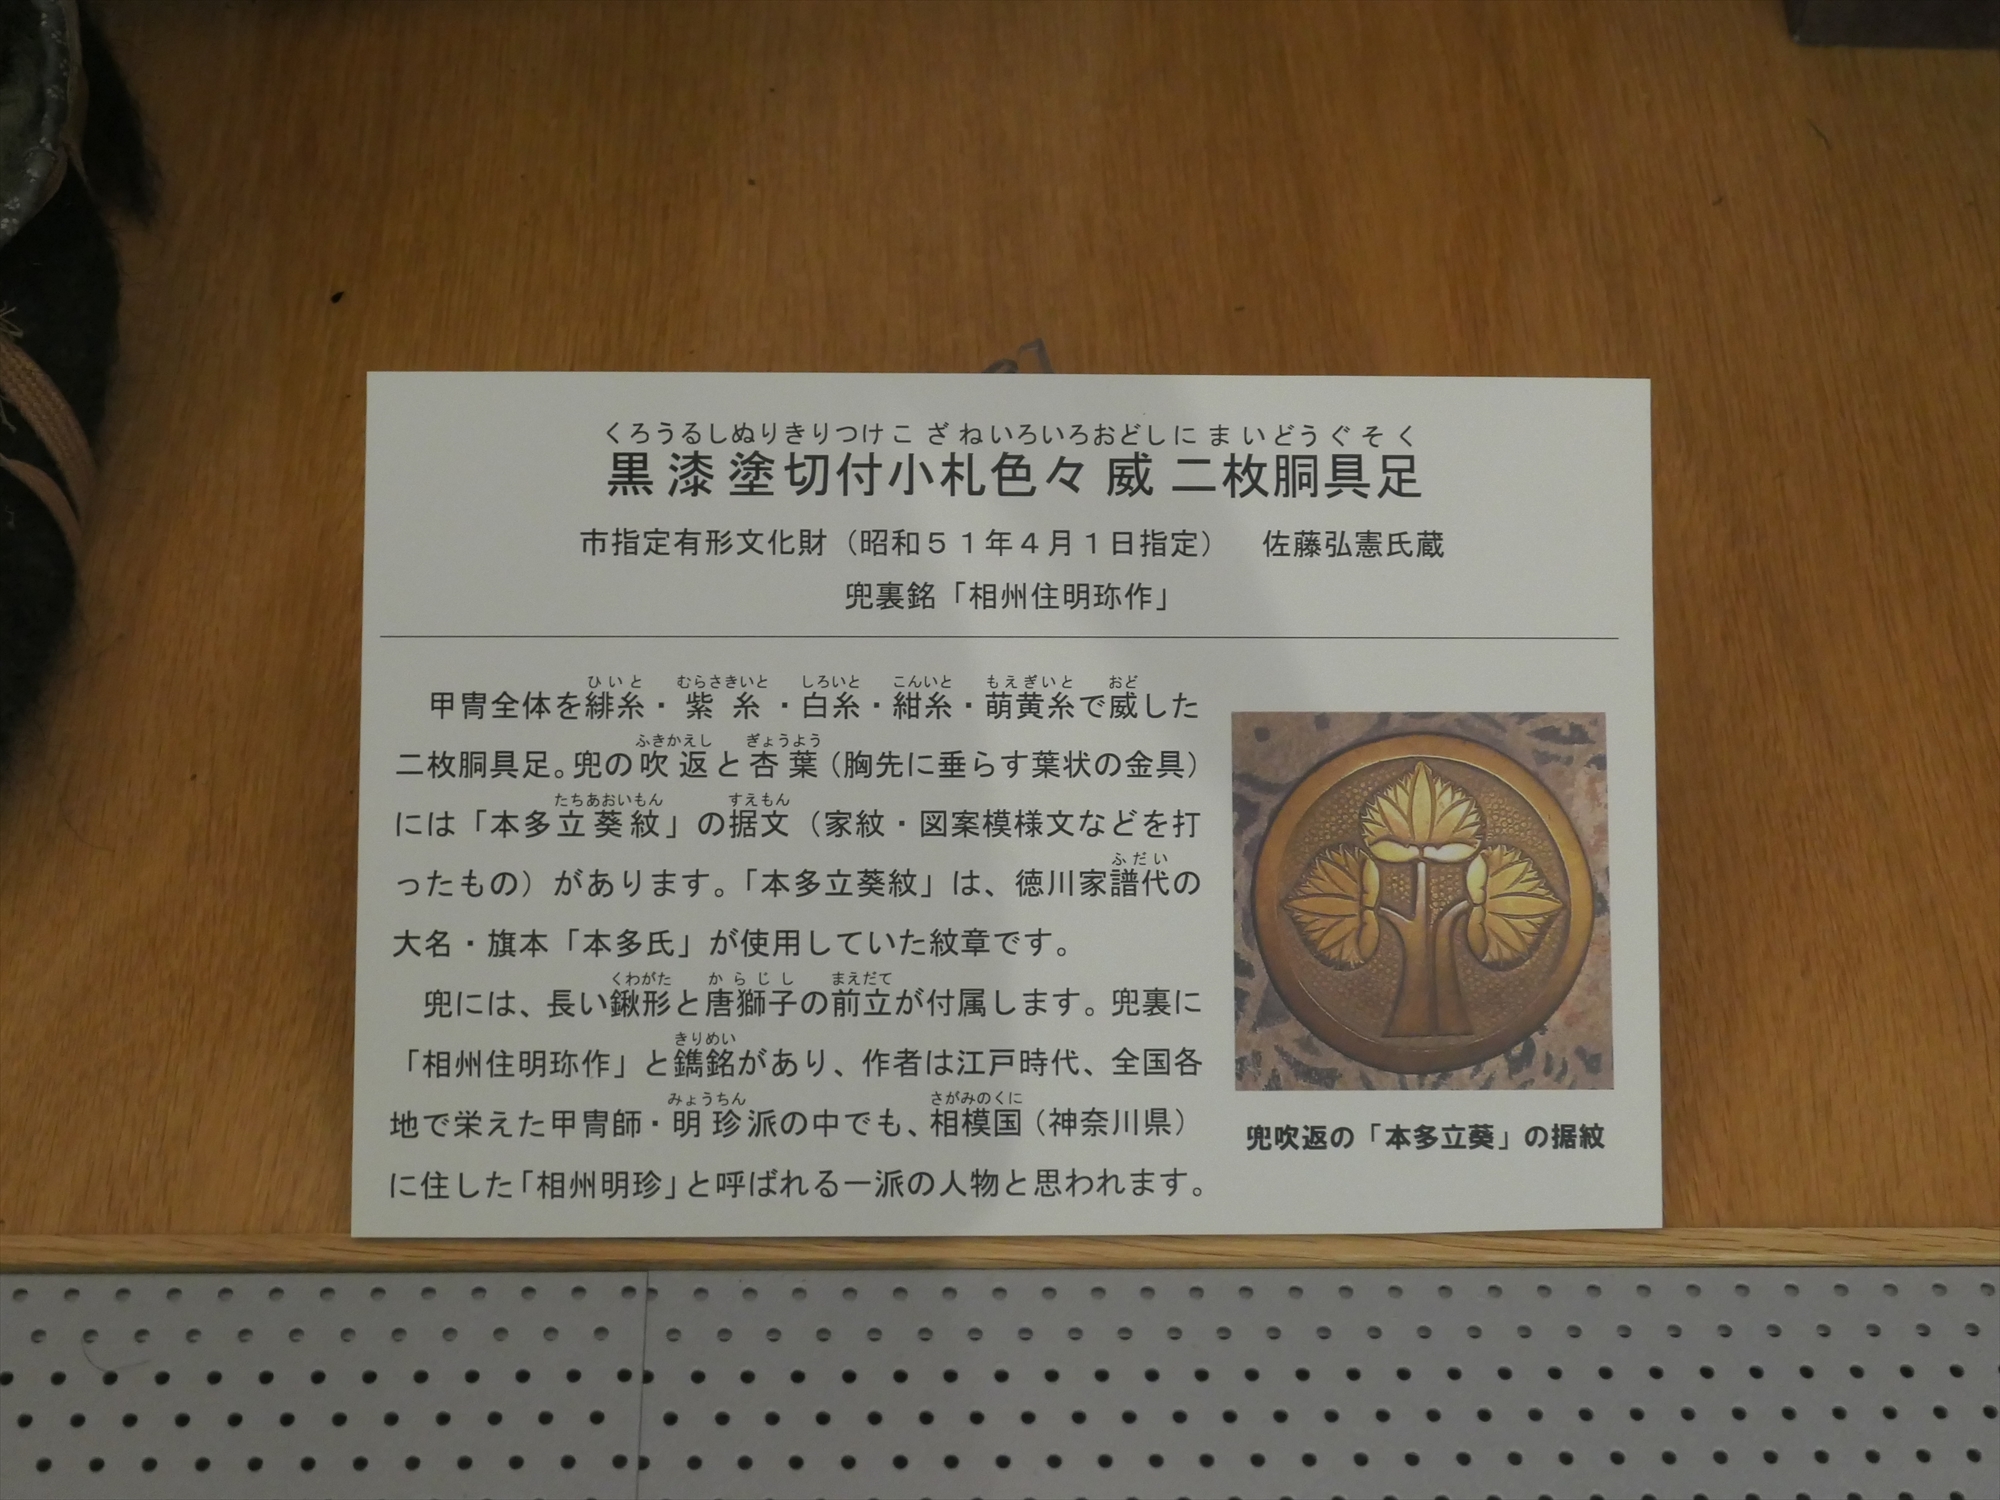 くろうるしぬりきりつけこざねいろいろおどしにまいどうぐそく
黒漆塗切付小札色々威二枚胴具足
市指定有形文化財（昭和５１年４月１日指定）　佐藤弘憲氏蔵
兜裏銘「相州住明珎作」
ひいと　むらさきいと　しろいと　こんいと　もえぎいと　おど
甲冑全体を緋糸・紫糸・白糸・紺糸・萌黄糸で威した
ふきかえし　ぎょうよう
二枚胴具足。兜の吹返と杏葉（胸先に垂らす葉状の金具）
たちあおいもん　すえもん
には「本多立葵紋」の据文（家紋・図案模様文などを打
ふだい
ったもの）があります。「本多立葵紋」は、徳川家譜代の
大名・旗本「本多氏」が使用していた紋章です。
くわがた　からじし　まえだて
兜には、長い鍬形と唐獅子の前立が付属します。兜裏に
きりめい
「相州住明珎作」と鐫銘があり、作者は江戸時代、全国各
みょうちん　さがみのくに
地で栄えた甲冑師・明珍派の中でも、相模国（神奈川県）
に住した「相州明珍」と呼ばれる一派の人物と思われます。
兜吹返の「本多立葵」の据紋